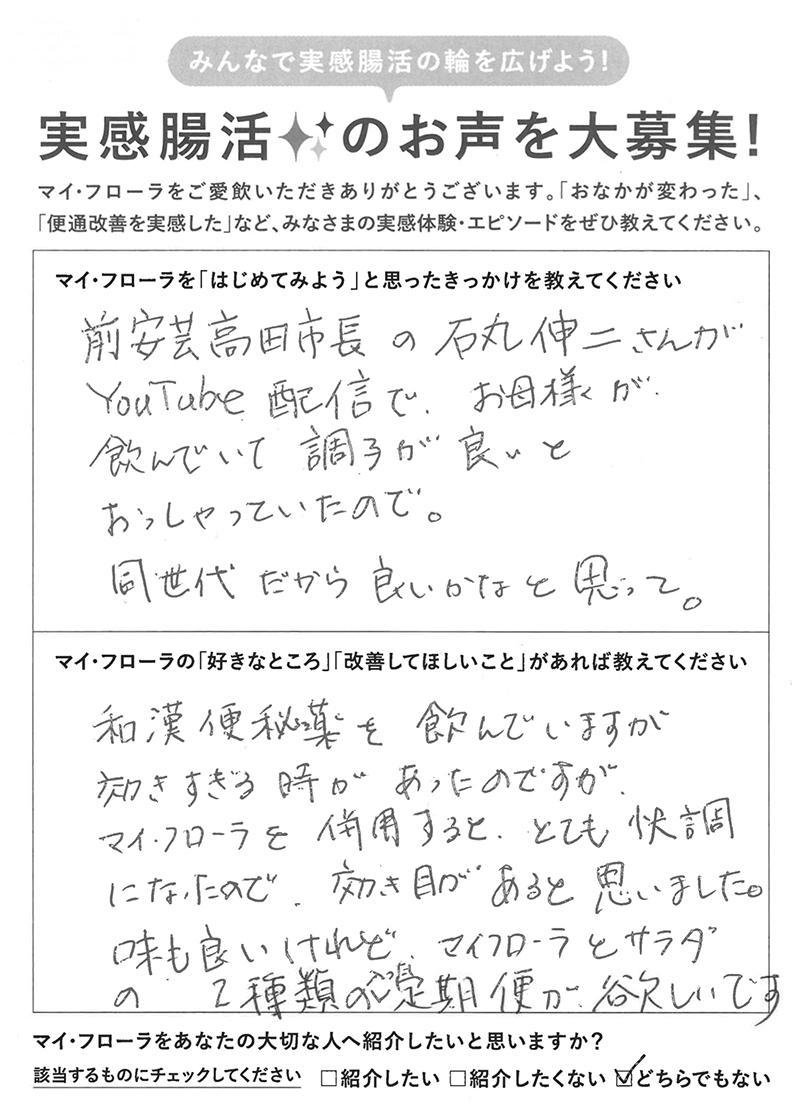 みんなで実感腸活の輪を広げよう!
実感腸活のお声を大募集!
マイ・フローラをご愛飲いただきありがとうございます。「おなかが変わった」、
「便通改善を実感した」など、みなさまの実感体験・エピソードをぜひ教えてください。
マイ・フローラを「はじめてみよう」と思ったきっかけを教えてください
前安芸高田市長の石丸伸二さんが
YouTube配信で、お母様が
飲んでいて調子が良いと
おっしゃっていたので。
同世代だから良いかなと思って。
マイ・フローラの「好きなところ」「改善してほしいこと」があれば教えてください
和漢便秘薬を飲んでいますが
効きすぎる時があったのですが、
マイ・フローラを併用すると、とても快調
になったので、効き目があると思いました。
味も良いけれど、マイフローラとサラダ
の 2種類の定期便が欲しいです
マイ・フローラをあなたの大切な人へ紹介したいと思いますか?
該当するものにチェックしてください □紹介したい □紹介したくない ☑どちらでもない